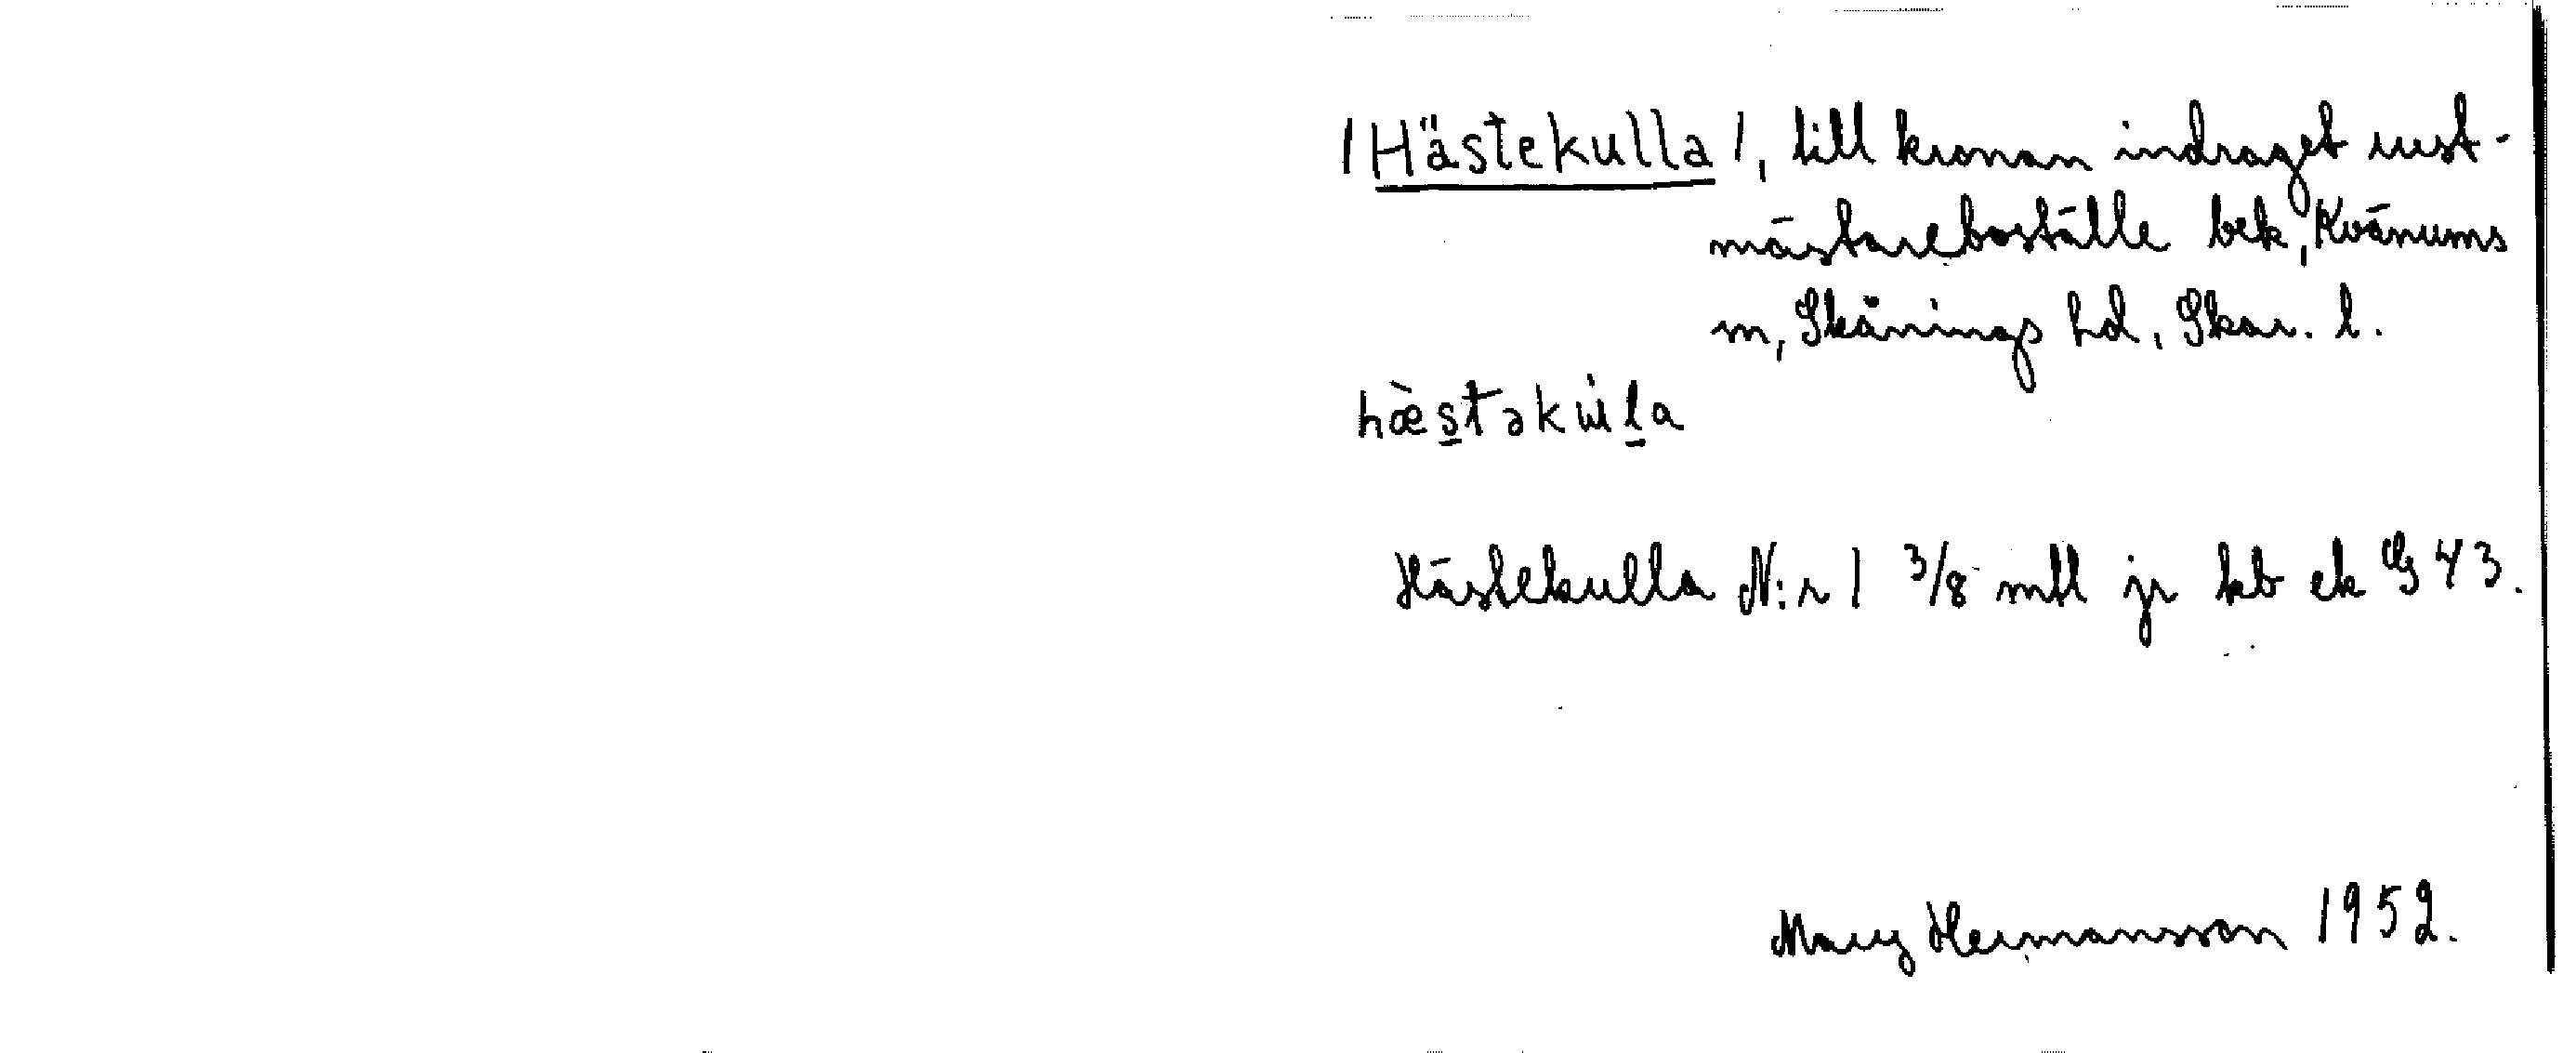 /Hästekulla/, till kronan indraget rust-
mästareboställe bek, Kvänums
sn, Skånings hd, Skar. l.
hæ̀stəkùla
Hästekulla N:r 1 3/8 mtl jr kb ek G 43.
Mary Hermansson 1952.